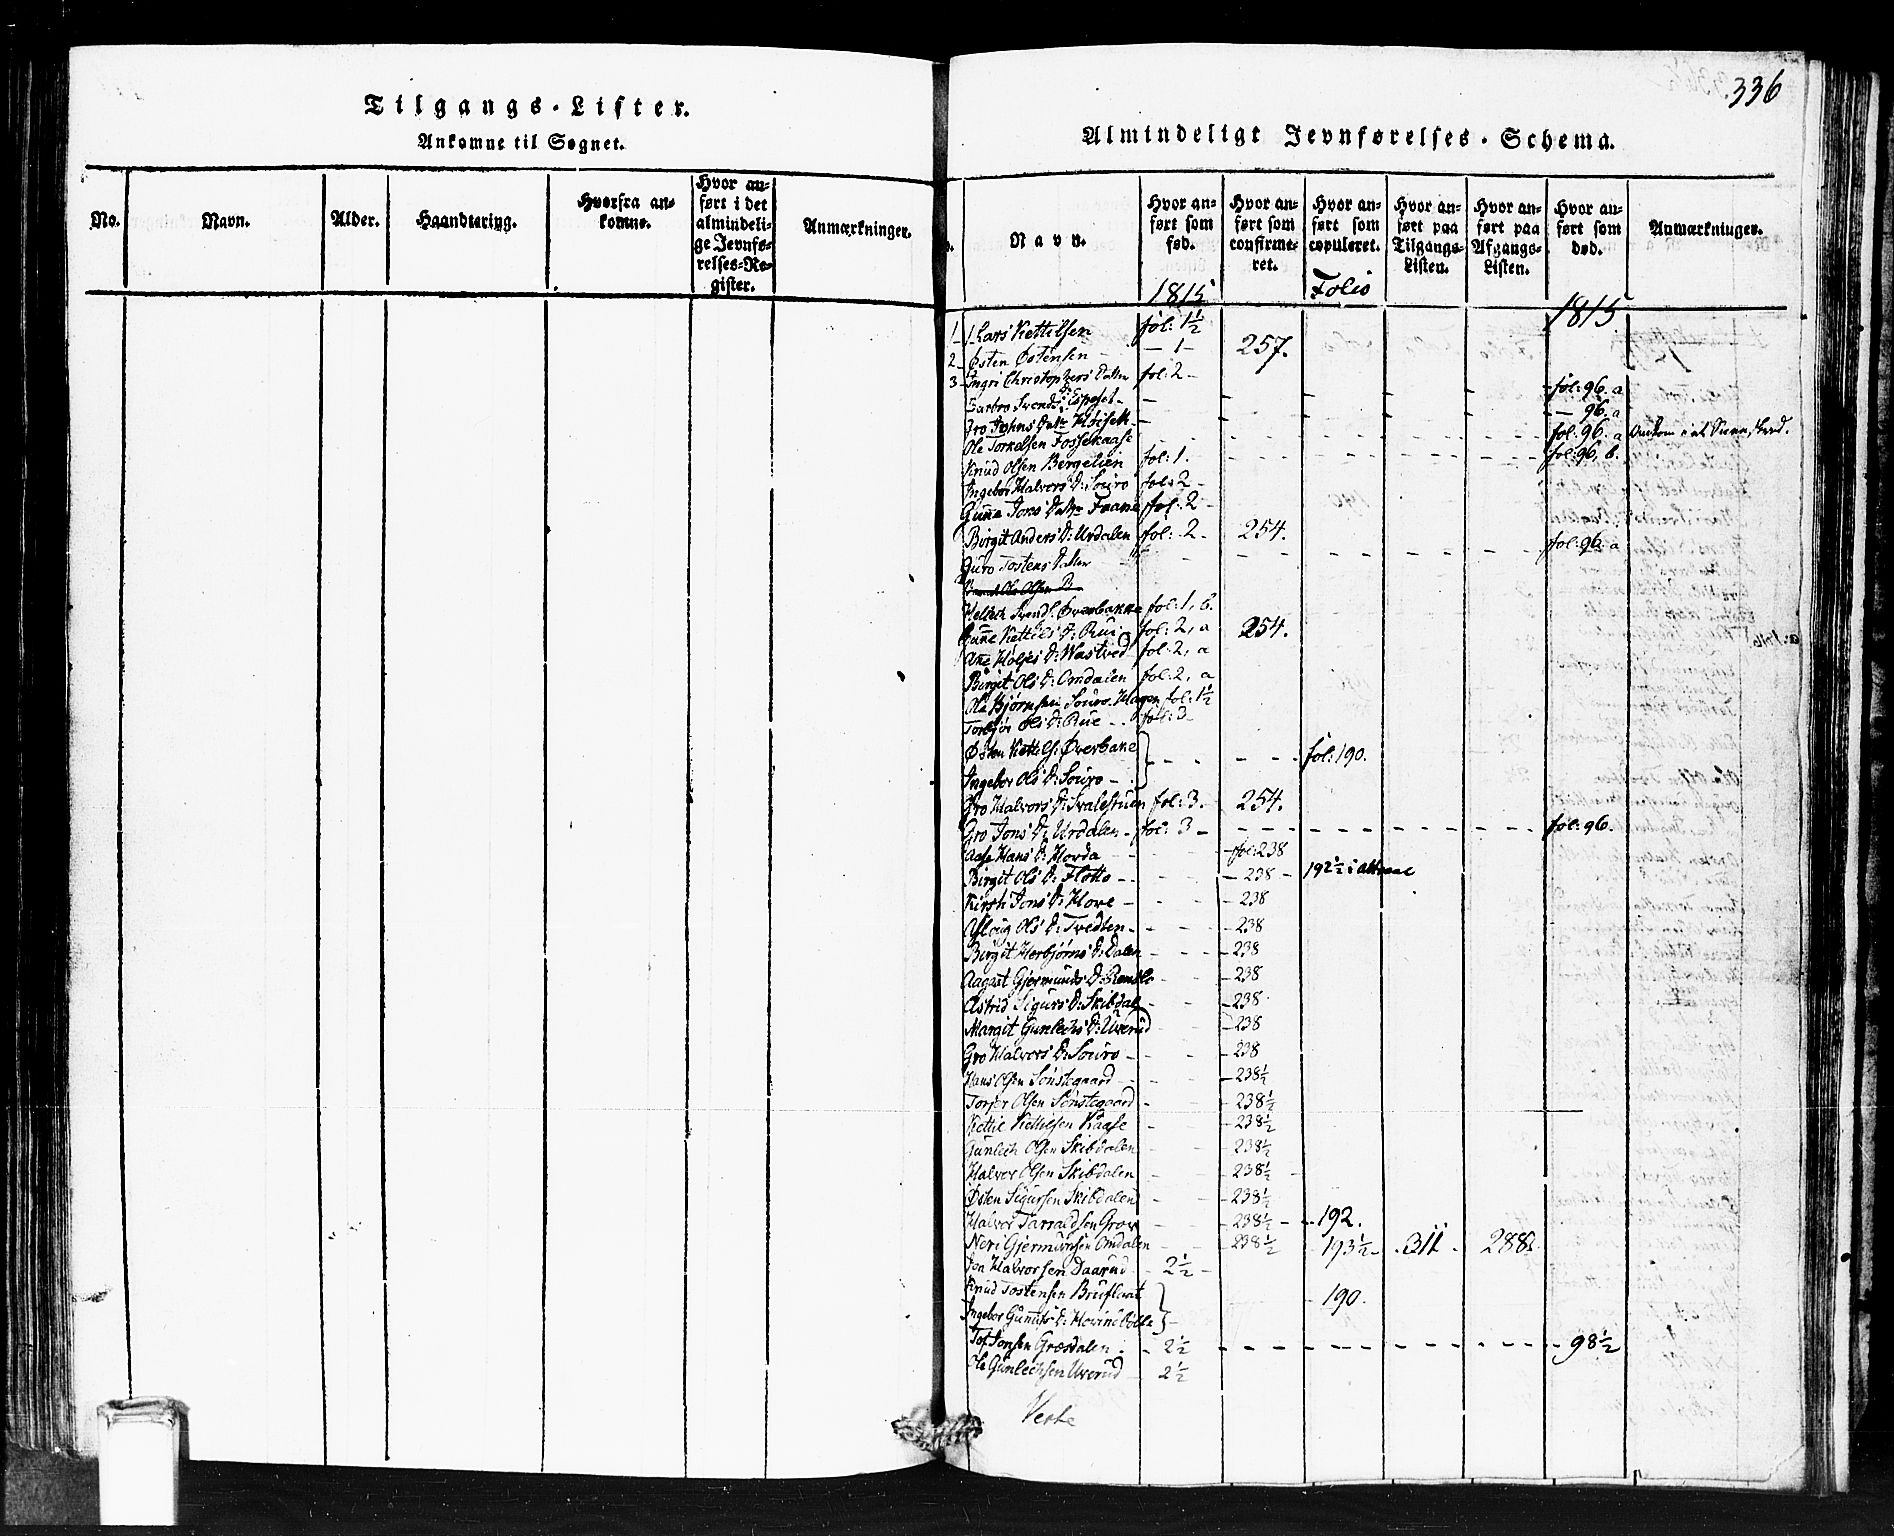 Tilgangs-Lister.
Ankomne til Sognet.
No.
Navn.
Alder.
Haandtering.
Hvorfra an-
komne.
Hvor an-
ført i det
almindeli-
ge Jevnfø-
relses-Re-
gister.
Anmærkninger.
336
Almindeligt Jevnførelses-Schema.
Navn.
Hvor an-
ført som
fød.
Hvor an-
ført som
confirme-
ret.
Hvor an-
ført som
copuleret.
Hvor an-
ført paa
Tilgangs-
Listen.
Hvor an-
ført paa
Afgangs-
Listen.
Hvor an-
ført som
død.
Anmærkninger.
1815 Folio 1815
1 Lars Kettilsen fol: 1½
2 Østen Østensen — 1 — 257.
3 Ingri Christophers Datter fol: 2 — fol: 96. a
Barbro Svends D: — — 96. a
Gro Johns Datr — fol. 96. a
Ole Torkelsen Fossekaase fol: 96. b.
Knud Olsen Bergelien fol: 1.
Ingebor Halvors D: Souro fol: 2 —
Gunne Jons Datr fol: 2 —
Birgit Anders D: Urdalen fol: 2. 254.
Guro Tostens Datter fol: 96. a
Svend: Øverbakke fol: 1, b.
Gunne Kettils D: Rui fol: 2, a 254.
Ane Holjes D: Wastved fol: 2, a
Birgit Ols D: Omdalen fol: 2, a
Ole Bjørnsen Souro Hagen fol: 1½
Torbjør Ols D: Rue fol: 3
Østen Kettils: Øverbake } fol: 190.
Ingebor Ols D: Souro }
Gro Halvors D: Svalestuen fol: 3. 254.
Gro Jons D: Urdalen fol: 3 — fol: 96.
Aase Hans D: Hovda fol: 238
Birgit Ols D: Flotto — 238 — 192½
Kirsti Jons D: Hove — 238
Aslaug Ols D: Tvedten — 238
Birgit Herbjørns D: Dalen — 238
Aagast Gjermunds D: — 238
Astrid Sigurs D: Skibdal — 238
Margit Gunlechs D: Uverud — 238
Gro Halvors D: Souro — 238
Hans Olsen Sønstegaard — 238½
Torjer Olsen Sønstegaard — 238½
Kettil Kettilsen Kaase — 238½
Gunlech Olsen Skibdalen — 238½
Halvor Olsen Skibdalen — 238½
Østen Sigursen Skibdalen — 238½
Halvor Tarraldsen Grov — 238½ — 192.
Neri Gjermundsen Omdalen — 238½ 193½ 311 288½
Jon Halvorsen Daarud 2½ —
Knud Tostensen Bruflaat } — 190.
Ingebor Gunnufs D: }
Tof Jonsen Græsdalen 2½ — 98½
Ole Gunlechsen Uverud 2½
Verte